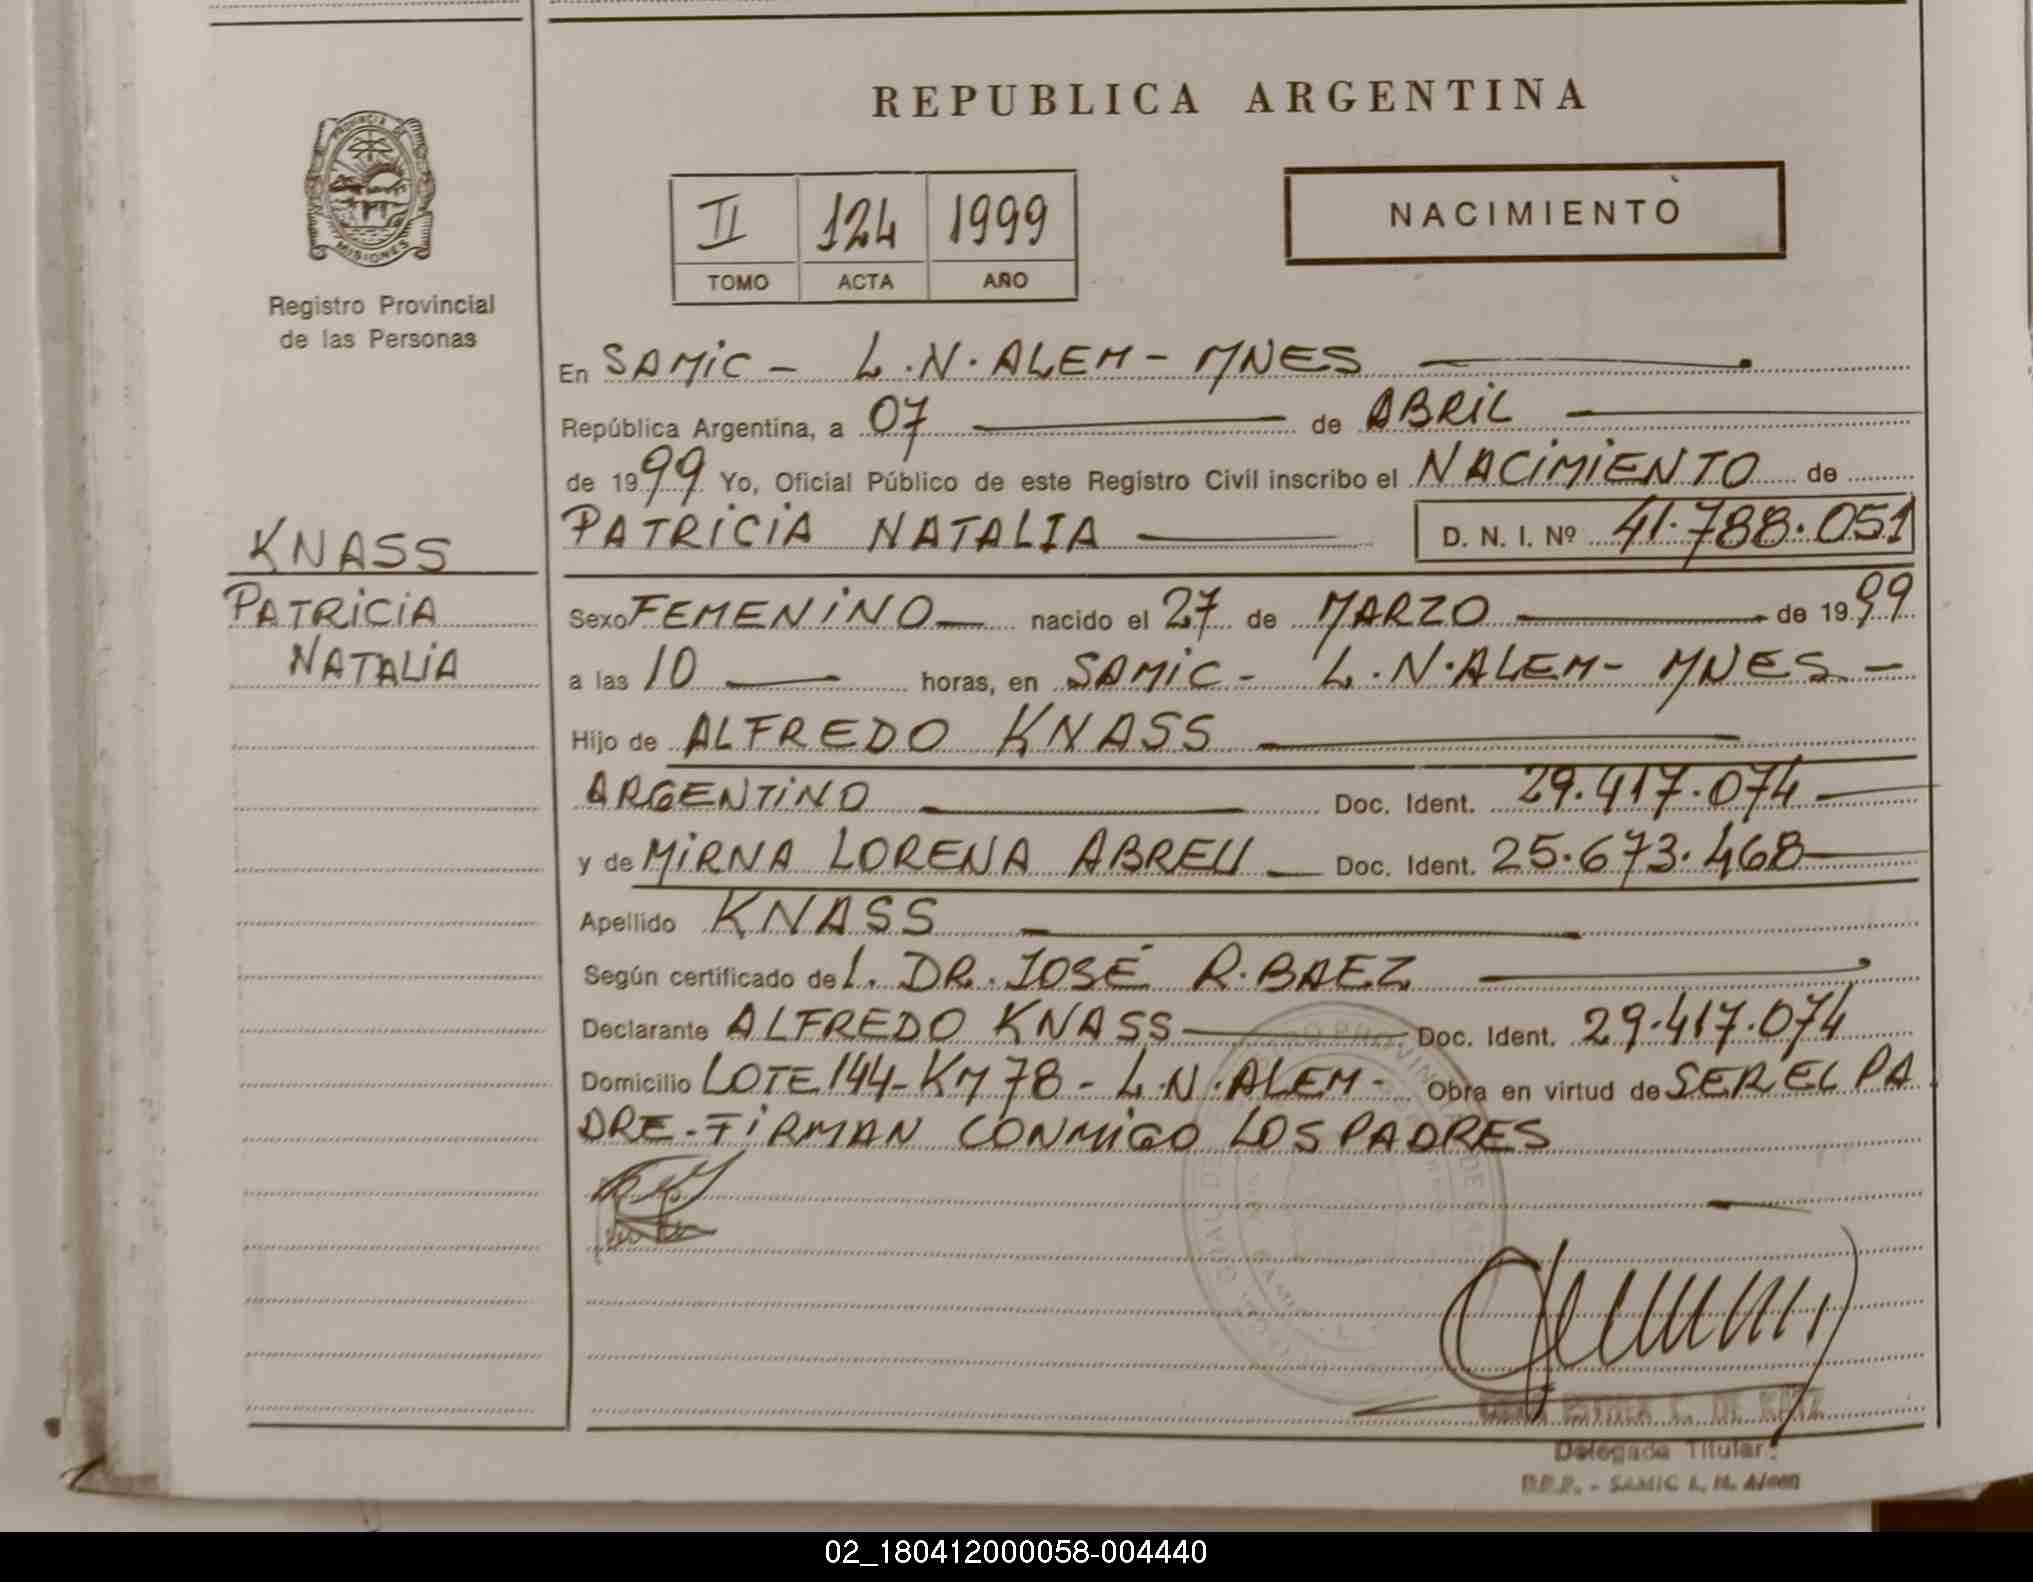 REPUBLICA ARGENTINA
PROVINCIA DE
MISIONES
Registro Provincial
de las Personas
II 124 1999
TOMO ACTA AÑO
NACIMIENTO
En SAMIC - L.N. ALEM - MNES
República Argentina, a 07 de ABRIL
de 1999 Yo, Oficial Público de este Registro Civil inscribo el NACIMIENTO de
PATRICIA NATALIA D. N. I. Nº 41.788.051
KNASS
PATRICIA
NATALIA
Sexo FEMENINO nacido el 27 de MARZO de 1999
a las 10 horas, en SAMIC - L.N. ALEM - MNES -
Hijo de ALFREDO KNASS
ARGENTINO Doc. Ident. 29.417.074
y de MIRNA LORENA ABREU Doc. Ident. 25.673.468
Apellido KNASS
Según certificado de L. DR. JOSÉ R. BAEZ
Declarante ALFREDO KNASS Doc. Ident. 29.417.074
Domicilio LOTE 144 - KM 78 - L.N. ALEM - Obra en virtud de SER EL PA
DRE - FIRMAN CONMIGO LOS PADRES
DE KATZ
Delegada Titular
SAMIC L. N. Alem
02_180412000058-004440